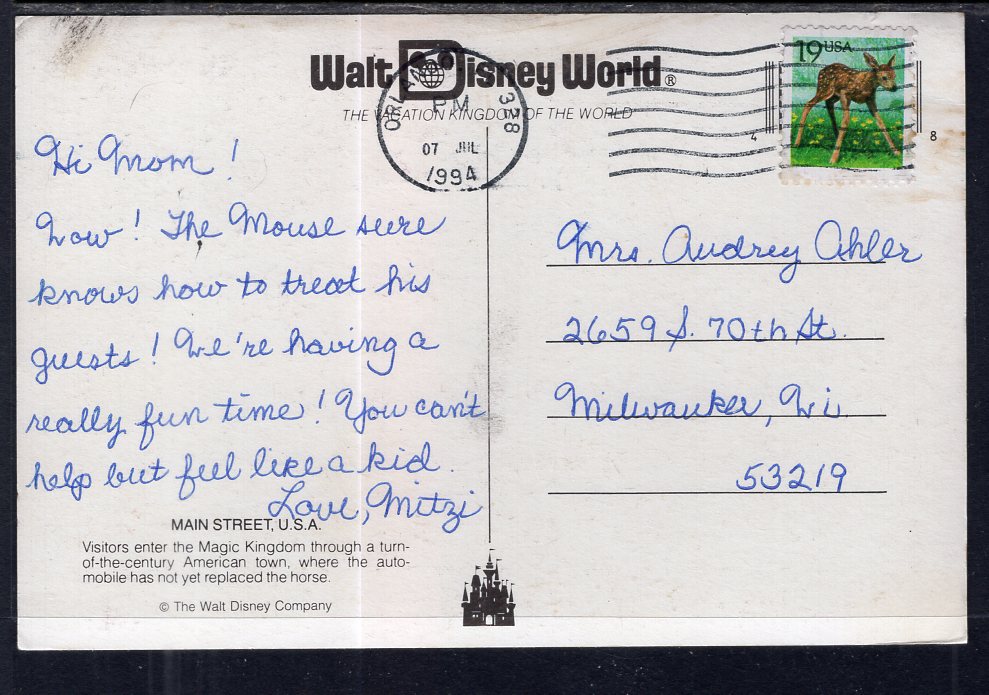 Walt Disney World®
THE VACATION KINGDOM OF THE WORLD
ORLANDO 328
PM
07 JUL
1994
19 USA
4
8
Hi Mom!
Wow! The Mouse sure
knows how to treat his
guests! We're having a
really fun time! You can't
help but feel like a kid.
Love, Mitzi
Mrs. Audrey Ahler
2659 S. 70th St.
Milwaukee, Wi
53219
MAIN STREET, U.S.A.
Visitors enter the Magic Kingdom through a turn-
of-the-century American town, where the auto-
mobile has not yet replaced the horse.
© The Walt Disney Company